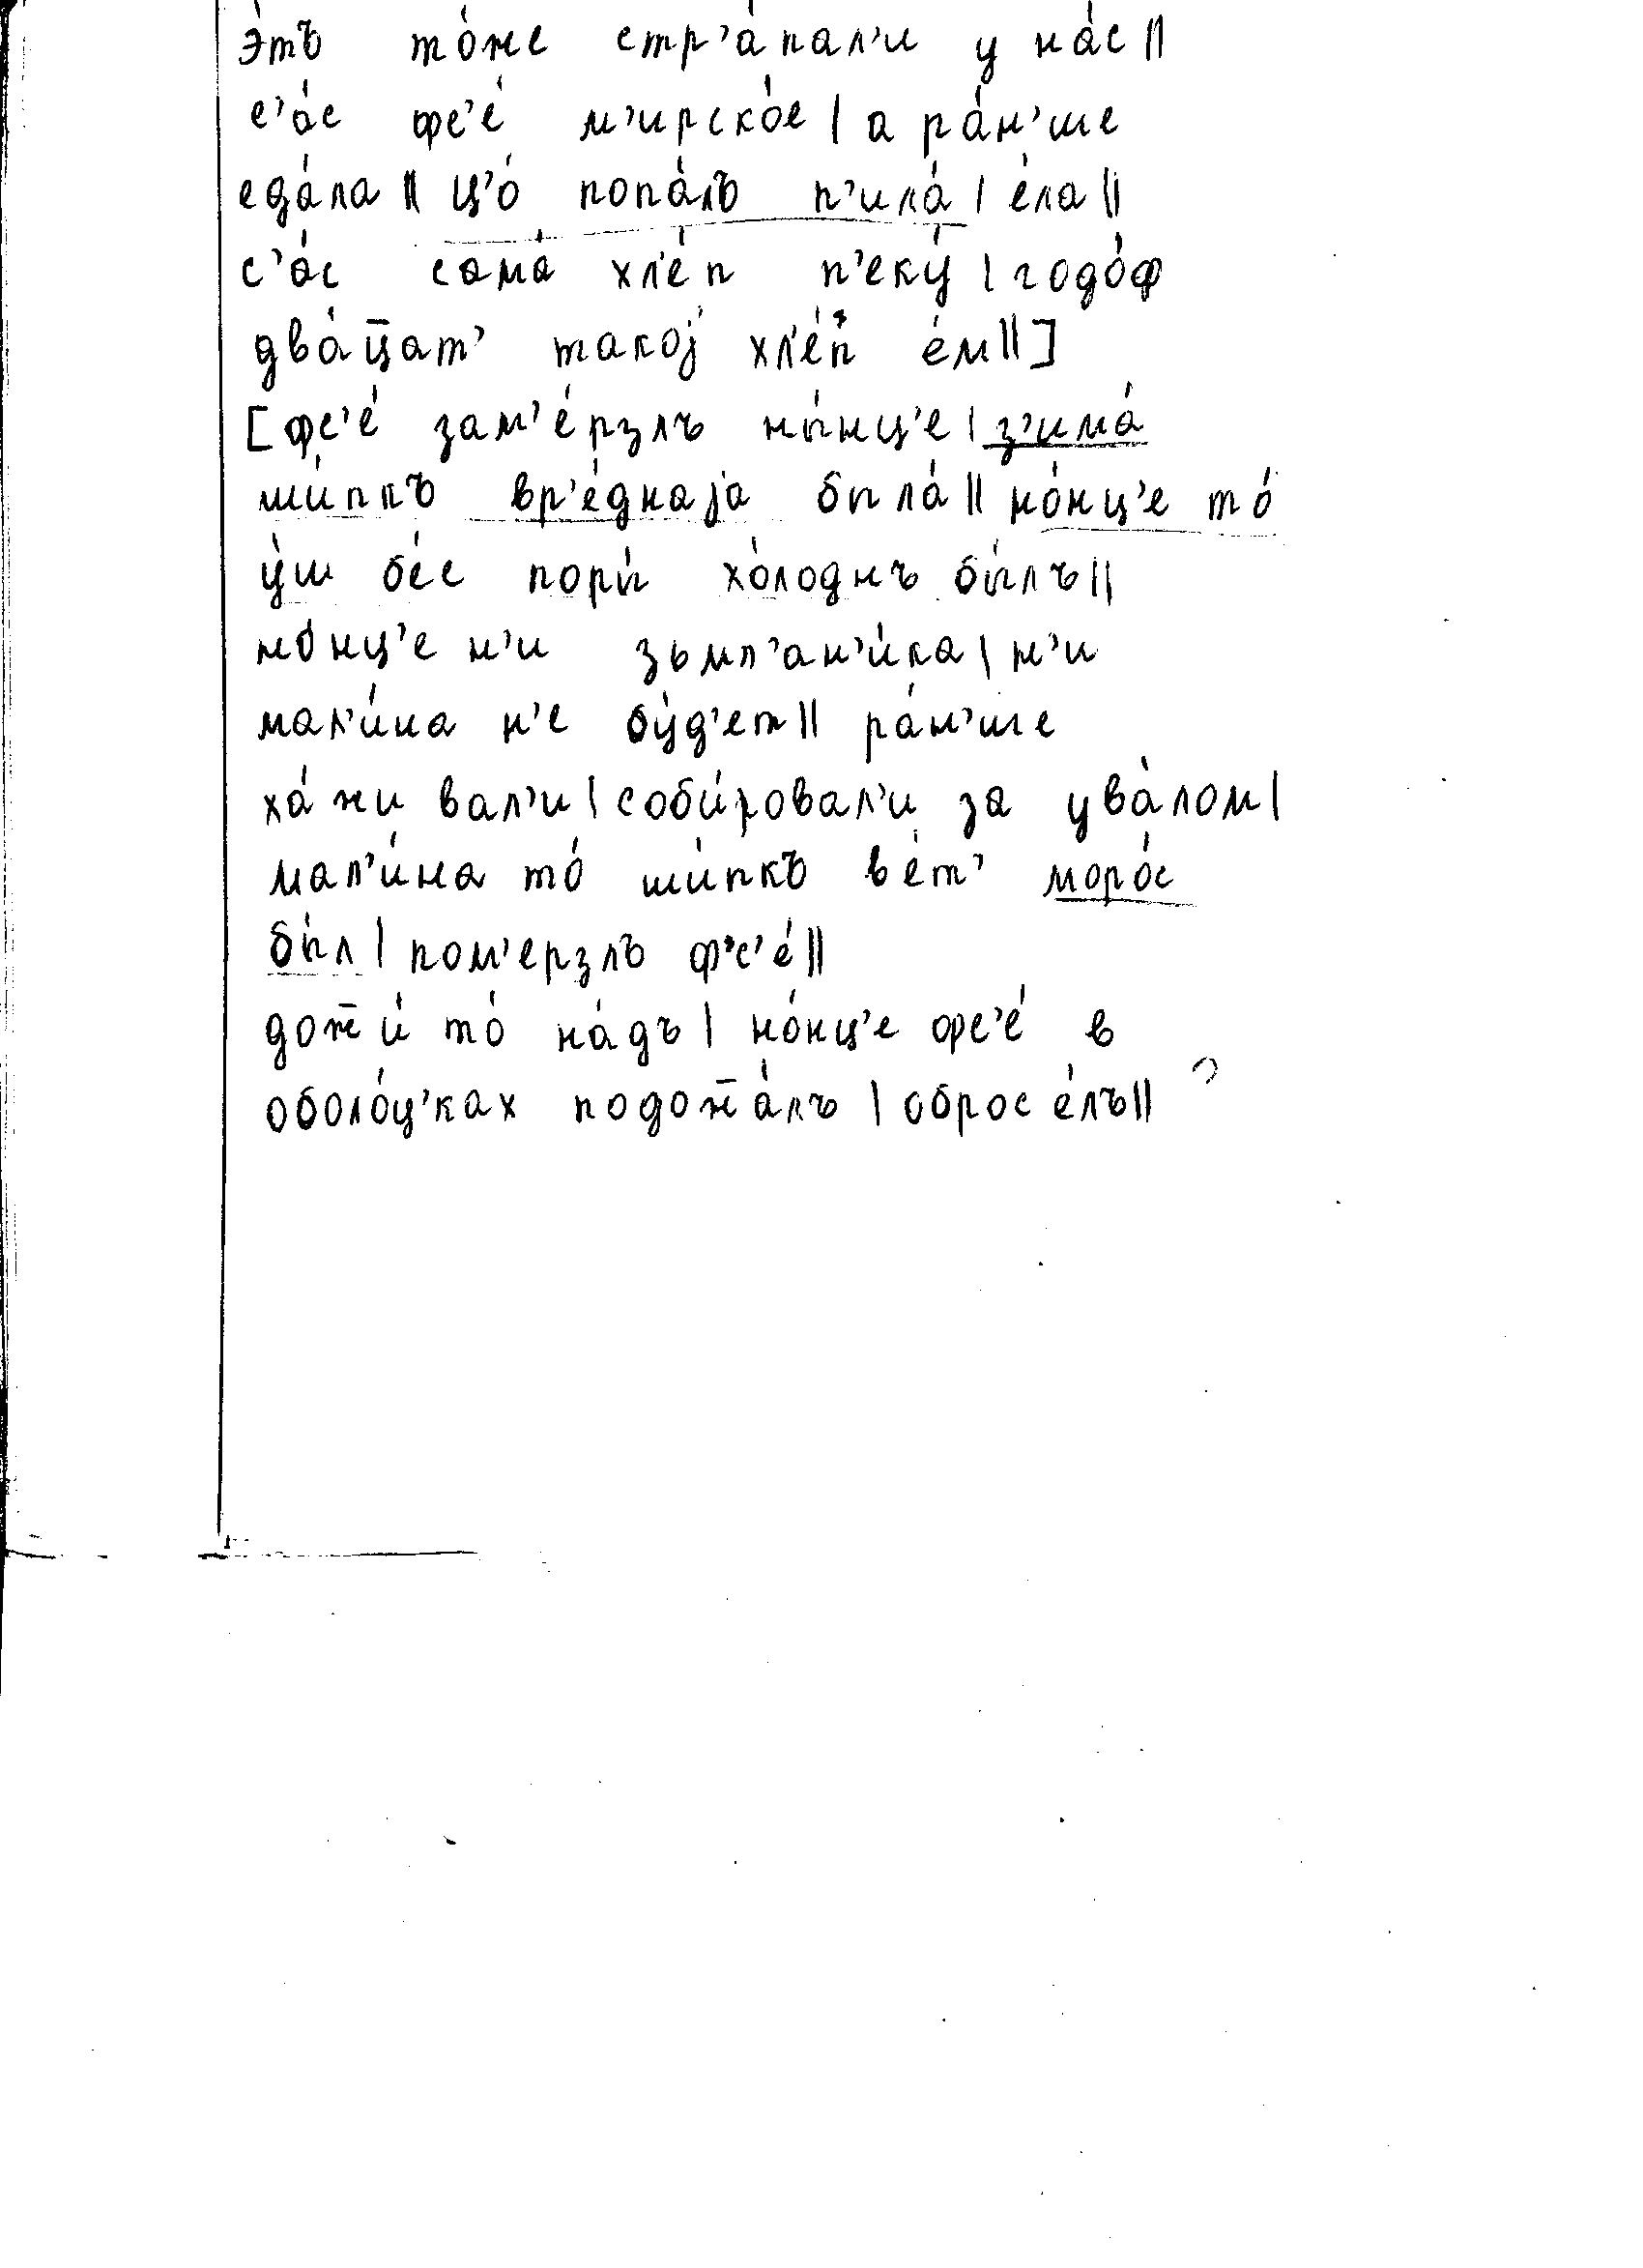 э́тъ то́же стр’а́пал’и у на́с ||
с’а́с фс’е́ м’ирско́е | а ра́н’ше
еда́ла || ц’о́ попа́лъ п’ила́ | е́ла ||
с’а́с сама́ хл’е́п п’еку́ | годо́ф
два́ц̄ат’ такоj́ хл’е́п е́м || ]
[ фс’е́ зам’е́рзлъ ны́нц’е | з’има́
ши́пкъ вр’е́днаjа была́ || но́нц’е то́
у́ш бе́с поры́ хо́лоднъ бы́лъ ||
но́нц’е н’и зьмл’ан’и́ка | н’и
мал’и́на н’е бу́д’ет || ра́н’ше
ха́живал’и | соби́ровал’и за ува́лом |
мал’и́на то́ ши́пкъ ве́т’ моро́с
бы́л | пом’ерзлъ ф’с’е́ ||
дож̄и́ то́ на́дъ | но́нц’е фс’е́ в
оболо́ц’ках подож̄а́лъ | оброс е́лъ ||